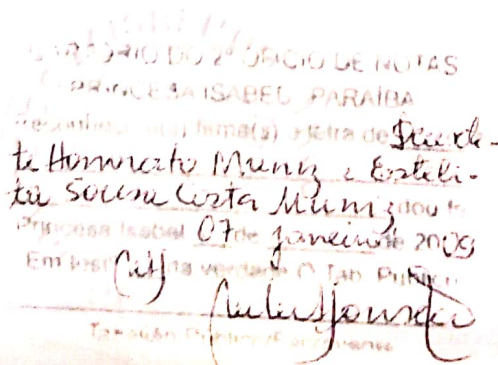 CARTÓRIO DO 2º OFÍCIO DE NOTAS
PRINCESA ISABEL PARAÍBA
Reconheço a(s) firma(s) e letra de
te Honorato Muniz e Esteli-
ta Sousa Costa Muniz dou fé
Princesa Isabel 07 de janeiro de 2009
Em test da verdade O Tab. Público
Tabelião Público